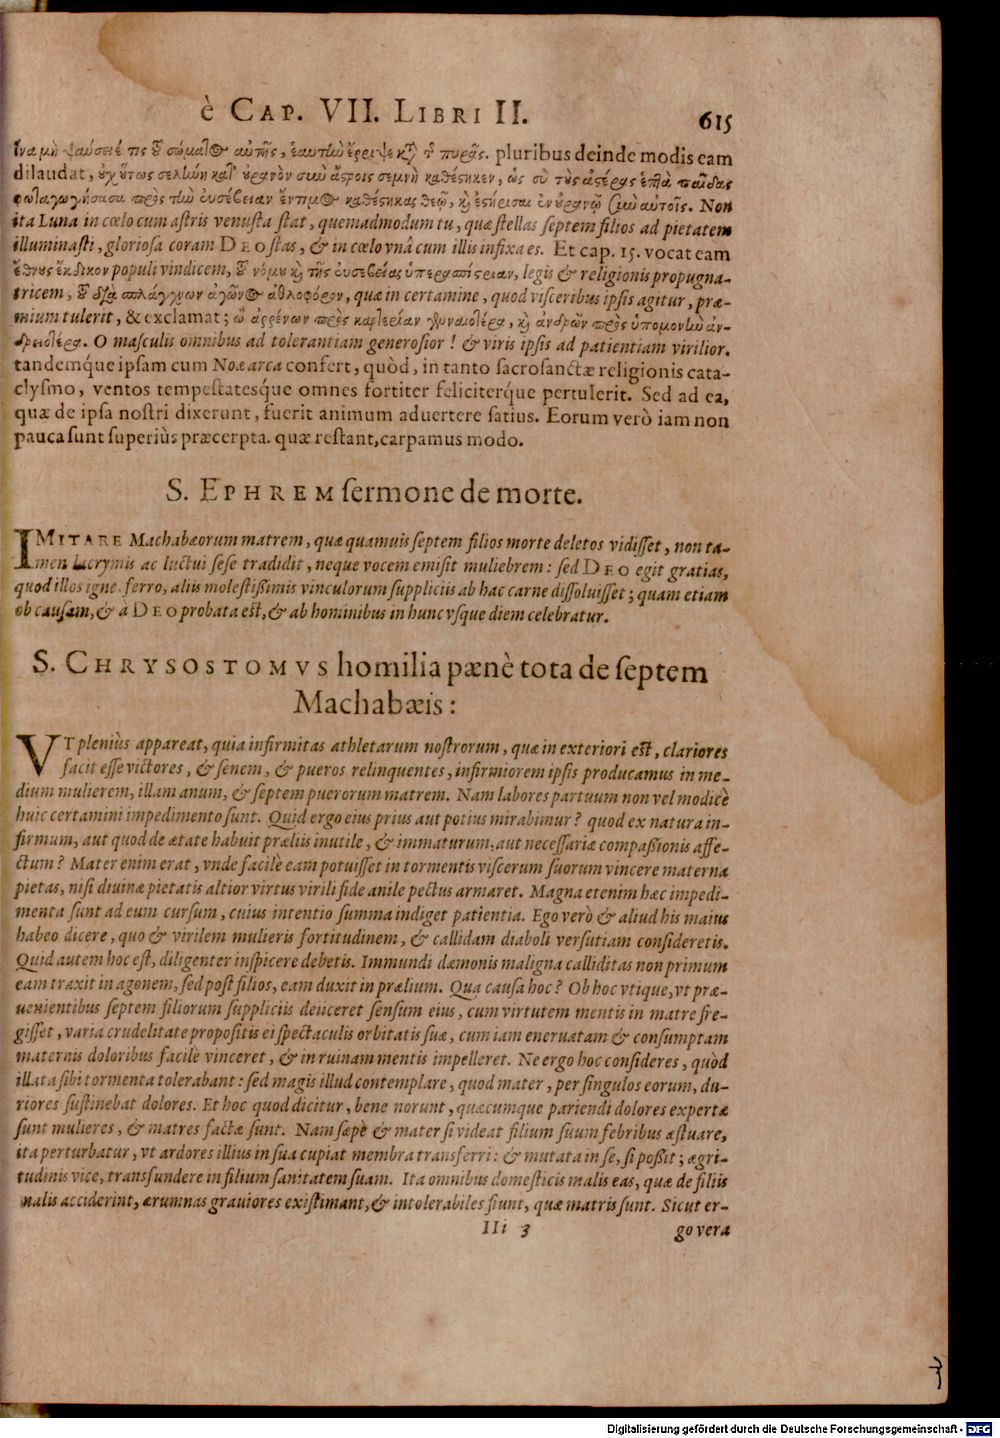 è CAP. VII. LIBRI II. 615
ἵνα μὴ ψαύσειέ τις τȣ͂ σώματος αὐτῆς, ἑαυτὴν ἔρριψε κατὰ τ πυρᾶς. pluribus deinde modis eam
dilaudat, ȣ̓χ ȣ̔́τως σελήνη κατ' ȣ̓ρανὸν σὺν ἄστροις σεμνὴ καθέστηκεν, ὡς σὺ τȣ̀ς ἀστέρας ἑπτὰ παῖδας
φωταγωγήσασα πρὸς τὴν ἐυσέβειαν ἔντιμος καθέστηκας θεῷ, κỳ ἐστήρισαι ἐν ȣ̓ρανῷ σὺν αὐτοῖς. Non
ita Luna in cœlo cum astris venusta stat, quemadmodum tu, quæ stellas septem filios ad pietatem
illuminasti, gloriosa coram DEO stas, & in cœlo vnâ cum illis infixa es. Et cap. 15. vocat eam
ἔθνους ἔκδικον populi vindicem, τȣ͂ νόμου κỳ τῆς ἐυσεβείας ὑπερασπίστριαν, legis & religionis propugna-
tricem, τȣ͂ διὰ σπλάγχνων ἀγῶνος ἀθλοφόρον, quæ in certamine, quod visceribus ipsis agitur, præ-
mium tulerit, & exclamat; ὦ ἀρρένων πρὸς καρτερίαν γενναιοτέρα, κỳ ἀνδρῶν πρὸς ὑπομονὴν ἀν-
δρειοτέρα. O masculis omnibus ad tolerantiam generosior! & viris ipsis ad patientiam virilior.
tandemq́ue ipsam cum Noæ arca confert, quòd, in tanto sacrosanctæ religionis cata-
clysmo, ventos tempestatesque omnes fortiter feliciterq́ue pertulerit. Sed ad ea,
quæ de ipsa nostri dixerunt, fuerit animum aduertere satius. Eorum verò iam non
pauca sunt superiùs præcerpta. quæ restant, carpamus modo.
S. EPHREM sermone de morte.
IMITARE Machabæorum matrem, quæ quamuis septem filios morte deletos vidisset, non ta-
men lacrymis ac luctui sese tradidit, neque vocem emisit muliebrem: sed DEO egit gratias,
quod illos igne, ferro, aliis molestißimis vinculorum suppliciis ab hac carne dissoluisset; quam etiam
ob causam, & à DEO probata est, & ab hominibus in hunc vsque diem celebratur.
S. CHRYSOSTOMVS homilia pænè tota de septem
Machabæis:
VT pleniùs appareat, quia infirmitas athletarum nostrorum, quæ in exteriori est, clariores
facit esse victores, & senem, & pueros relinquentes, infirmiorem ipsis producamus in me-
dium mulierem, illam anum, & septem puerorum matrem. Nam labores partuum non vel modicè
huic certamini impedimento sunt. Quid ergo eius prius aut potius mirabimur? quod ex natura in-
firmum, aut quod de ætate habuit præliis inutile, & immaturum, aut necessariæ compaßionis affe-
ctum? Mater enim erat, vnde facilè eam potuisset in tormentis viscerum suorum vincere materna
pietas, nisi diuinæ pietatis altior virtus virili fide anile pectus armaret. Magna etenim hæc impedi-
menta sunt ad eum cursum, cuius intentio summa indiget patientia. Ego verò & aliud his maius
habeo dicere, quo & virilem mulieris fortitudinem, & callidam diaboli versutiam consideretis.
Quid autem hoc est, diligenter inspicere debetis. Immundi dæmonis maligna calliditas non primum
eam traxit in agonem, sed post filios, eam duxit in prælium. Qua causa hoc? Ob hoc vtique, vt præ-
uenientibus septem filiorum suppliciis deiiceret sensum eius, cum virtutem mentis in matre fre-
gisset, varia crudelitate propositis ei spectaculis orbitatis suæ, cum iam eneruatam & consumptam
maternis doloribus facilè vinceret, & in ruinam mentis impelleret. Ne ergo hoc consideres, quòd
illata sibi tormenta tolerabant: sed magis illud contemplare, quod mater, per singulos eorum, du-
riores sustinebat dolores. Et hoc quod dicitur, bene norunt, quæcumque pariendi dolores expertæ
sunt mulieres, & matres factæ sunt. Nam sæpè & mater si videat filium suum febribus æstuare,
ita perturbatur, vt ardores illius in sua cupiat membra transferri: & mutata in se, si poßit; ægri-
tudinis vice, transfundere in filium sanitatem suam. Ita omnibus domesticis malis eas, quæ de filiis
malis acciderint, ærumnas grauiores existimant, & intolerabiles fiunt, quæ matris sunt. Sicut er-
IIi 3 go vera
Digitalisierung gefördert durch die Deutsche Forschungsgemeinschaft - DFG